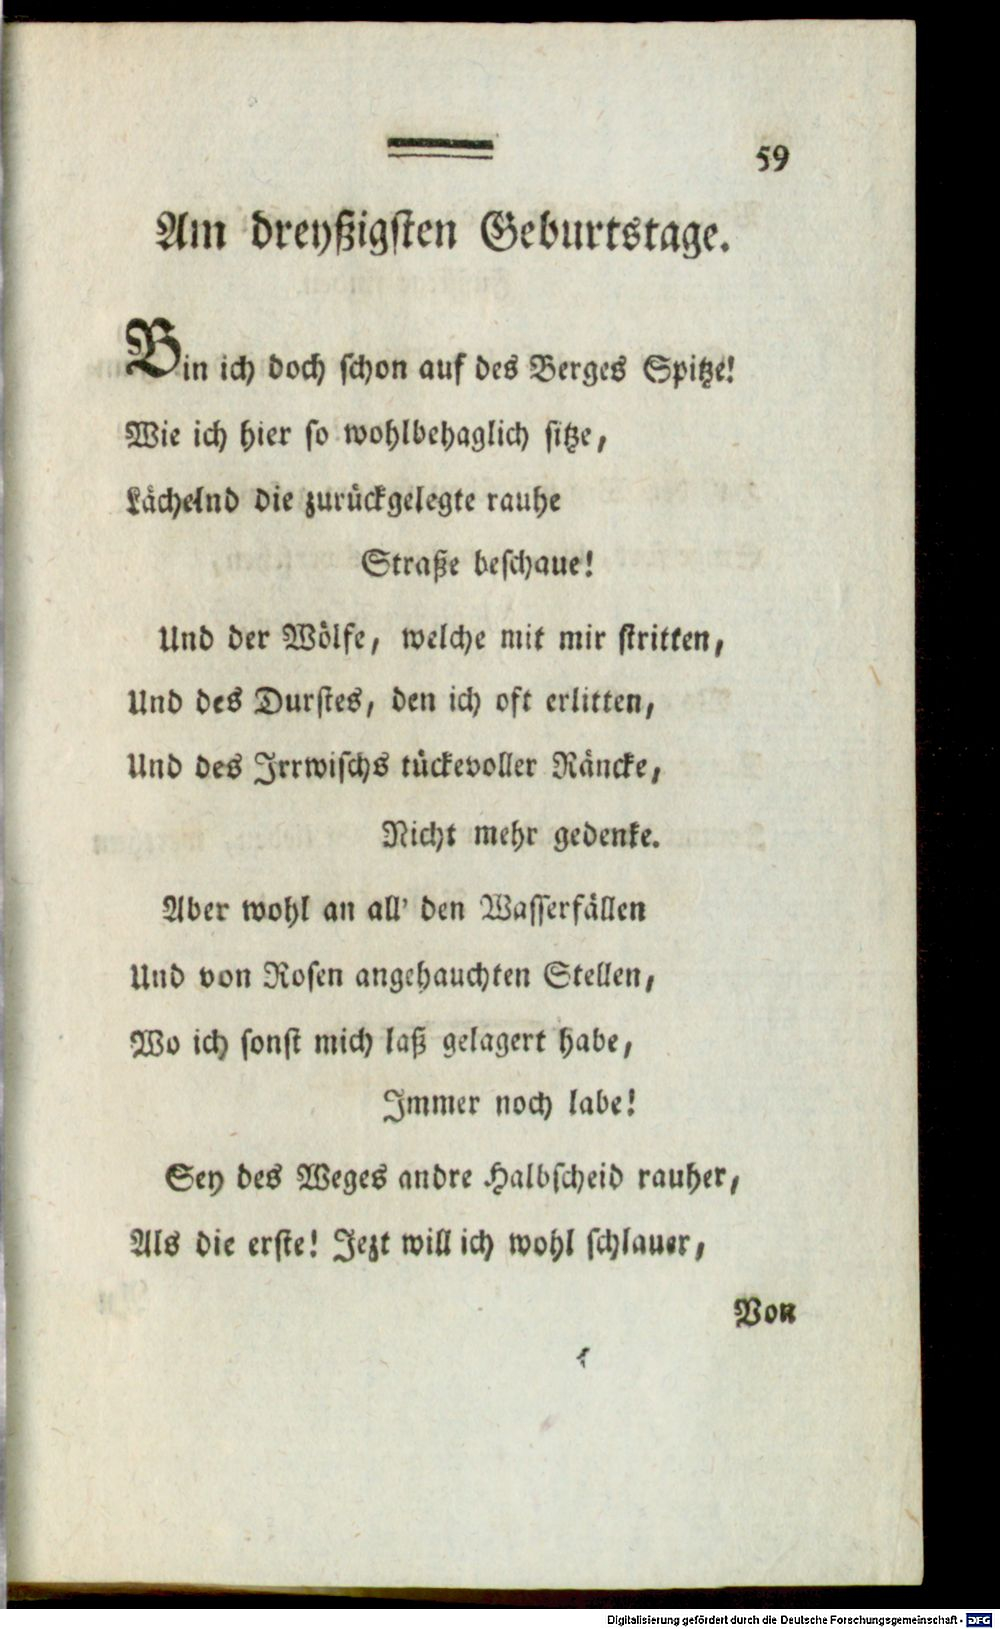 59
Am dreyßigsten Geburtstage.
Bin ich doch schon auf des Berges Spitze!
Wie ich hier so wohlbehaglich sitze,
Lächelnd die zurückgelegte rauhe
Straße beschaue!
Und der Wölfe, welche mit mir stritten,
Und des Durstes, den ich oft erlitten,
Und des Irrwischs tückevoller Räncke,
Nicht mehr gedenke.
Aber wohl an all' den Wasserfällen
Und von Rosen angehauchten Stellen,
Wo ich sonst mich laß gelagert habe,
Immer noch labe!
Sey des Weges andre Halbscheid rauher,
Als die erste! Jezt will ich wohl schlauer,
Von
Digitalisierung gefördert durch die Deutsche Forschungsgemeinschaft - DFG